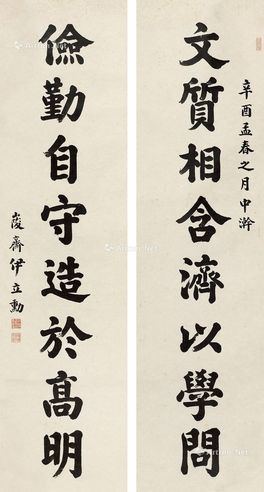 辛酉孟春之月中澣
文質相含濟以學問
儉勤自守造於高明
峻齋伊立勳